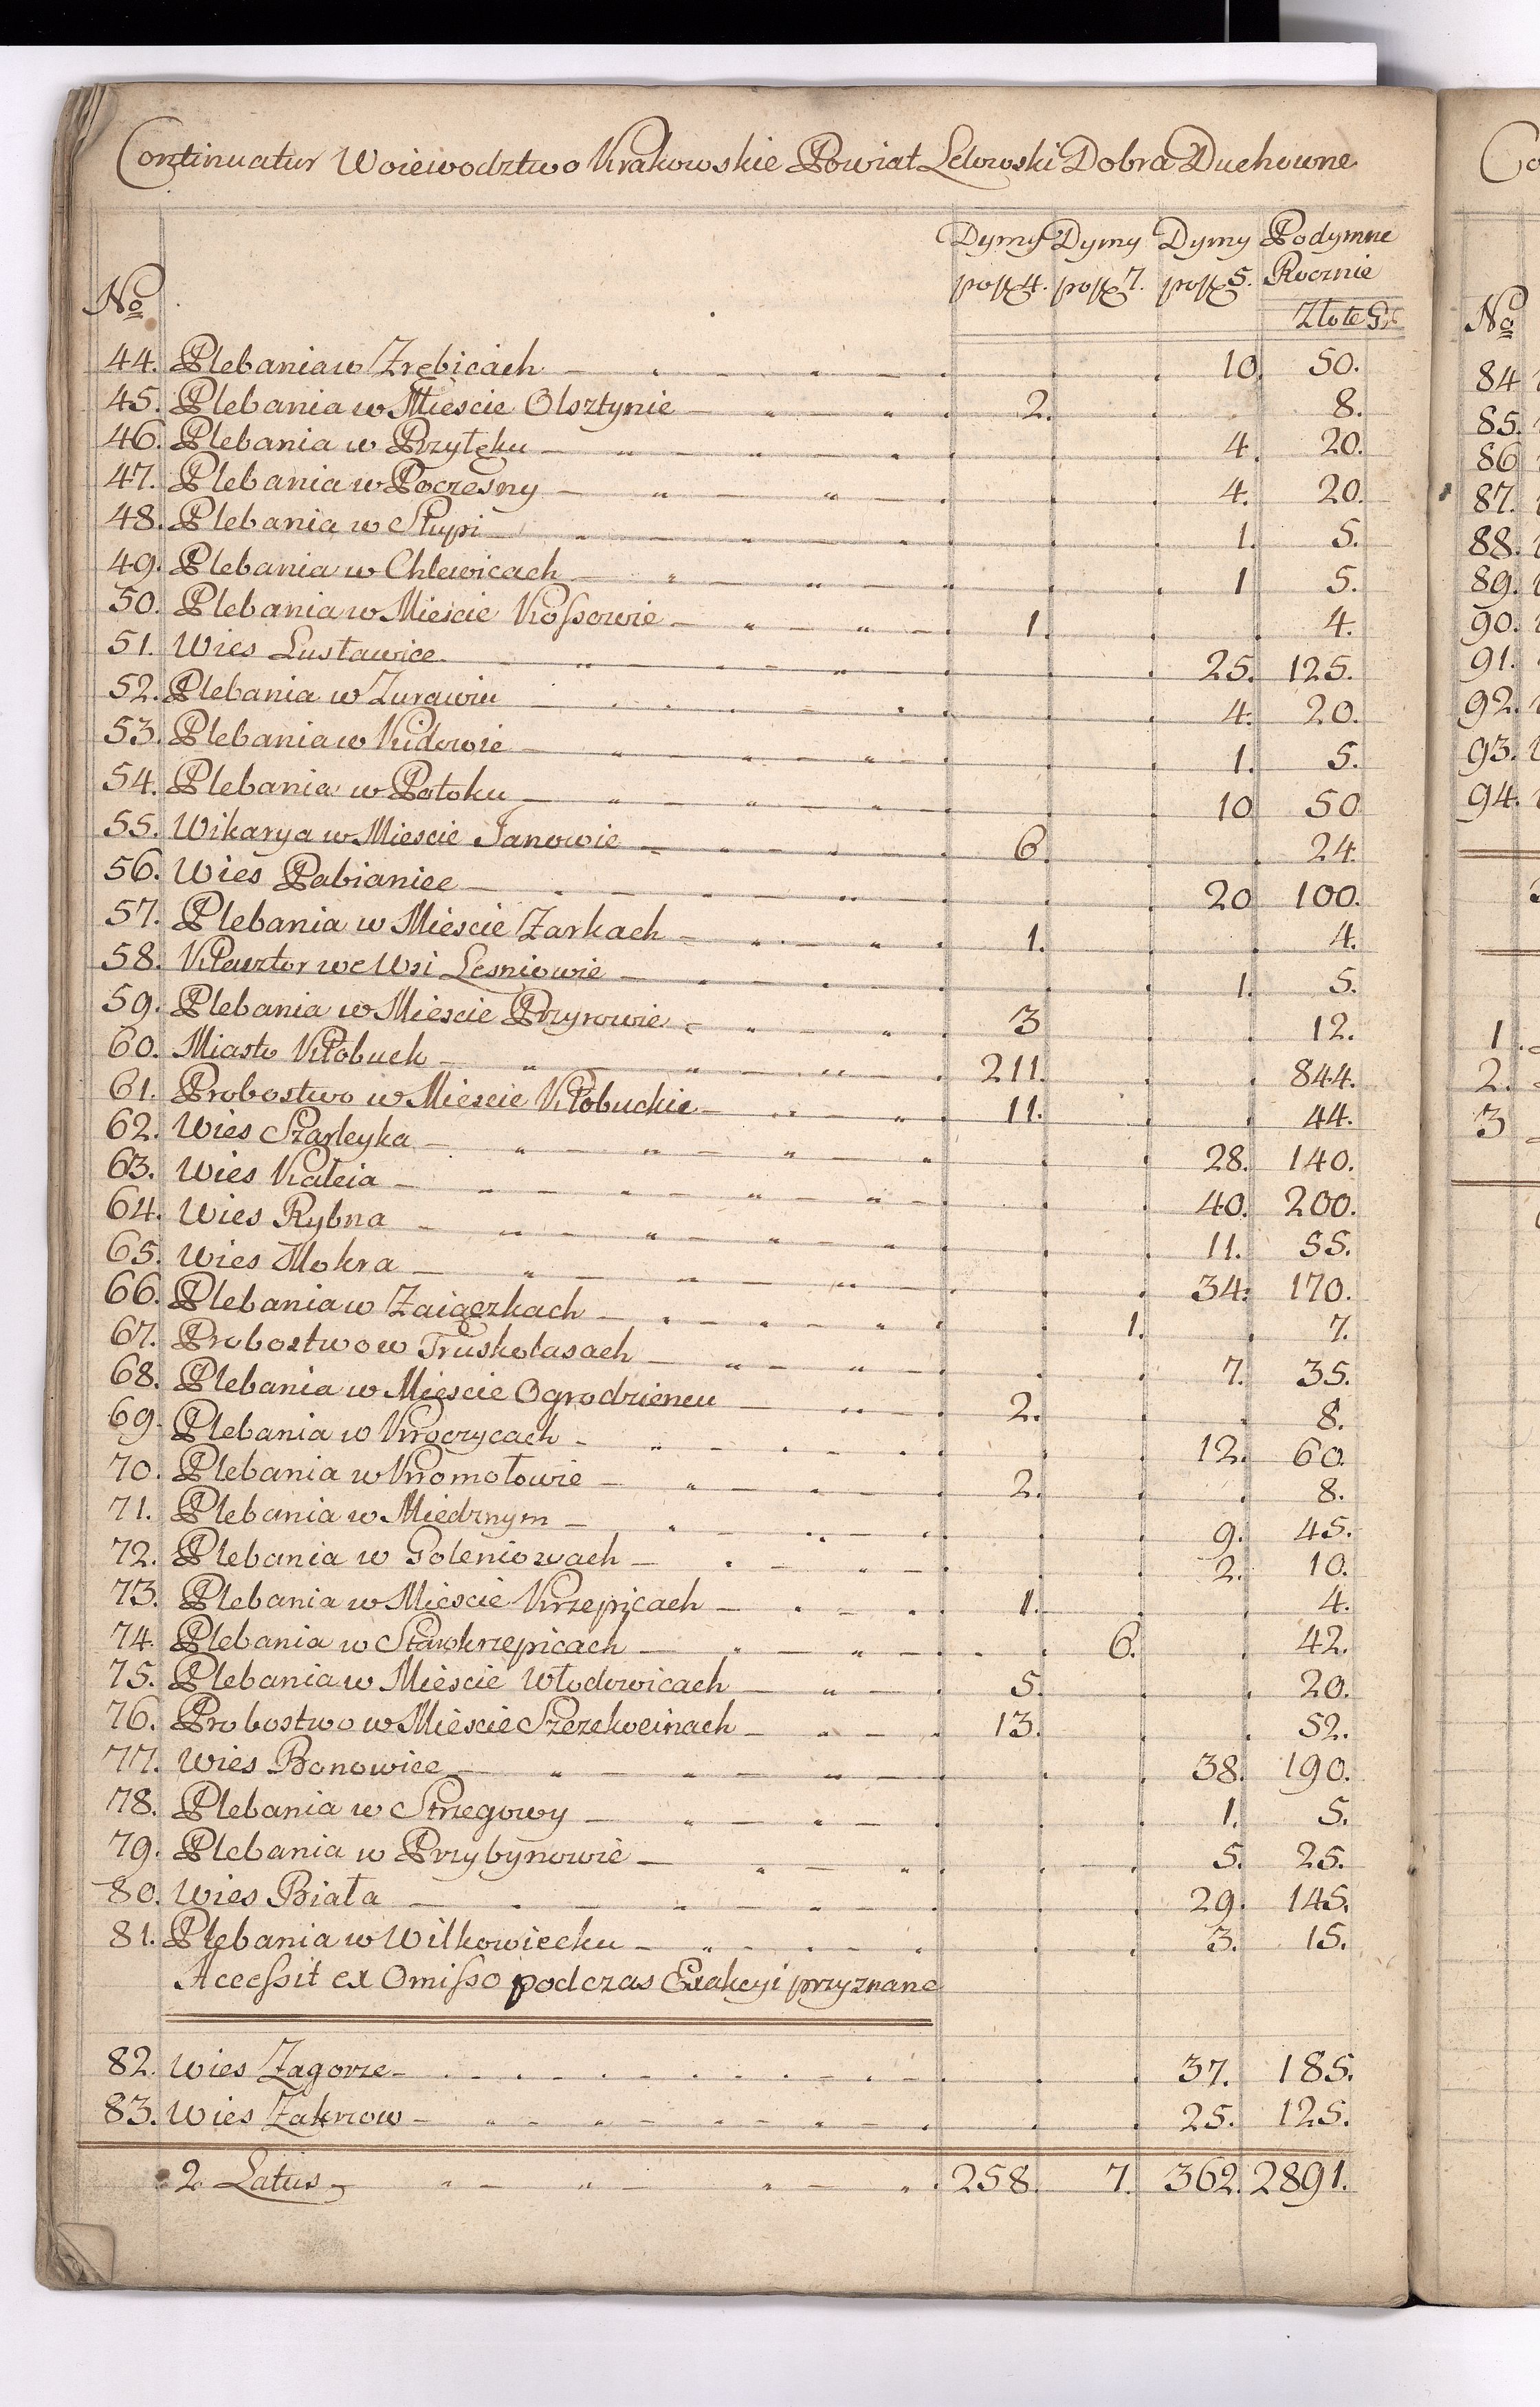 Continuatur Woiewodztwo Krakowskie Powiat Lelowski Dobra Duchowne
No Dymy po fl 4. Dymy po fl 7. Dymy po fl 5. Podymne Rocznie
Złote Gr
44. Plebania w Zrębicach 10 50.
45. Plebania w Miescie Olsztynie 2. 8.
46. Plebania w Przyłęku 4. 20.
47. Plebania w Poczesny 4. 20.
48. Plebania w Słupi 1. 5.
49. Plebania w Chlewicach 1 5.
50. Plebania w Miescie Kossowie 1. 4.
51. Wies Lusławice 25. 125.
52. Plebania w Zurawiu 4. 20.
53. Plebania w Kidowie 1. 5.
54. Plebania w Potoku 10 50
55. Wikarya w Miescie Janowie 6. 24.
56. Wies Pabianice 20 100.
57. Plebania w Miescie Zarkach 1. 4.
58. Klasztor we Wsi Lesniowie 1. 5.
59. Plebania w Miescie Przyrowie 3 12.
60. Miasto Kłobuck 211. 844.
61. Probostwo w Miescie Kłobucku 11. 44.
62. Wies Szarleyka 28. 140.
63. Wies Kaleia 40. 200.
64. Wies Rybna 11. 55.
65. Wies Mokra 34. 170.
66. Plebania w Zaiączkach 1. 7.
67. Probostwo w Truskolasach 7. 35.
68. Plebania w Miescie Ogrodziencu 2. 8.
69. Plebania w Kroczycach 12. 60.
70. Plebania w Kromołowie 2. 8.
71. Plebania w Miedznym 9. 45.
72. Plebania w Goleniowach 2. 10.
73. Plebania w Miescie Krzepicach 1. 4.
74. Plebania w Starokrzepicach 6. 42.
75. Plebania w Miescie Włodowicach 5. 20.
76. Probostwo w Miescie Szczekocinach 13. 52.
77. Wies Bonowice 38. 190.
78. Plebania w Strzegowy 1. 5.
79. Plebania w Przybynowie 5. 25.
80. Wies Biała 29. 145.
81. Plebania w Wilkowiecku 3. 15.
Accessit ex Omisso podczas Exakcyi przyznane
82. Wies Zagorze 37. 185.
83. Wies Zakrzow 25. 125.
2 Latus 258. 7. 362. 2891.
Co
No
84
85.
86
87.
88.
89.
90.
91.
92.
93.
94.
1
2.
3